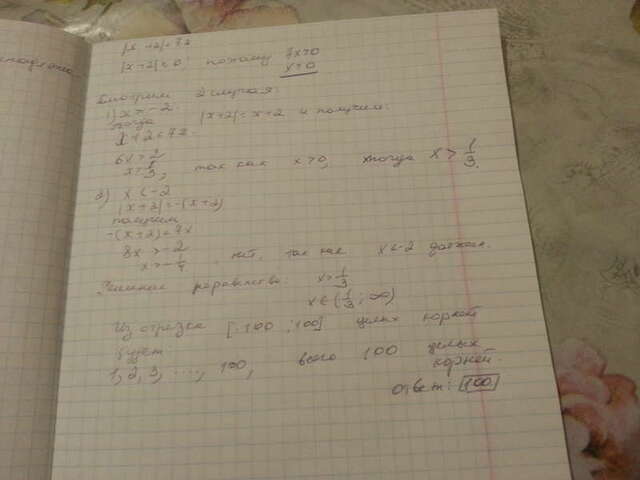 |x+2|<7x
|x+2|≥0, потому 7x>0
x>0
Смотрим 2 случая:
1) x>-2
тогда |x+2|=x+2 и получим:
x+2<7x
6x>2
x>1/3, так как x>0, тогда x>1/3.
2) x<-2
|x+2|=-(x+2)
получим
-(x+2)<7x
8x>-2
x>-1/4 нет, так как x<-2 должен.
Решение неравенства: x>1/3
x∈(1/3;∞)
Из отрезка [-100;100] целых корней
будет
1,2,3,....,100, всего 100 целых
корней.
ответ: 100